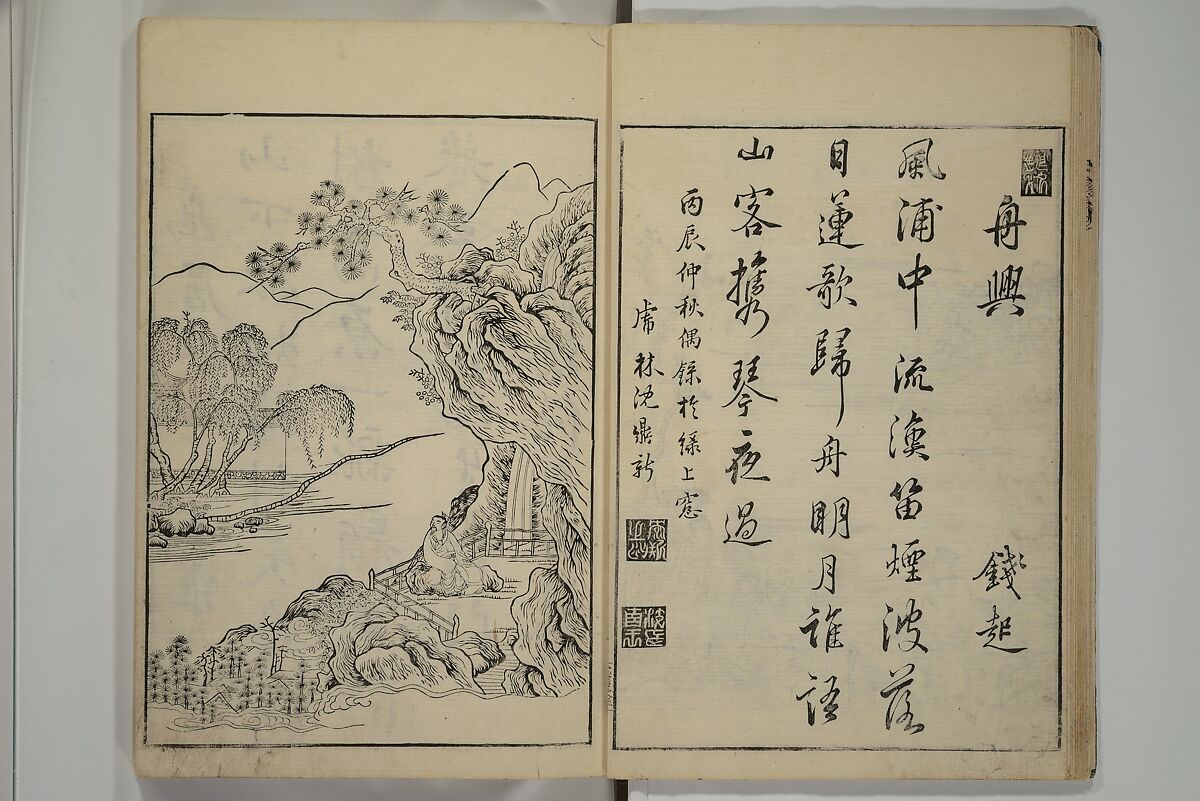 舟興 錢起
風浦中流漁笛煙波落
日蓮歌歸舟明月誰語
山客携琴夜過
丙辰仲秋偶録於緑上窓
虎林沈鼎新